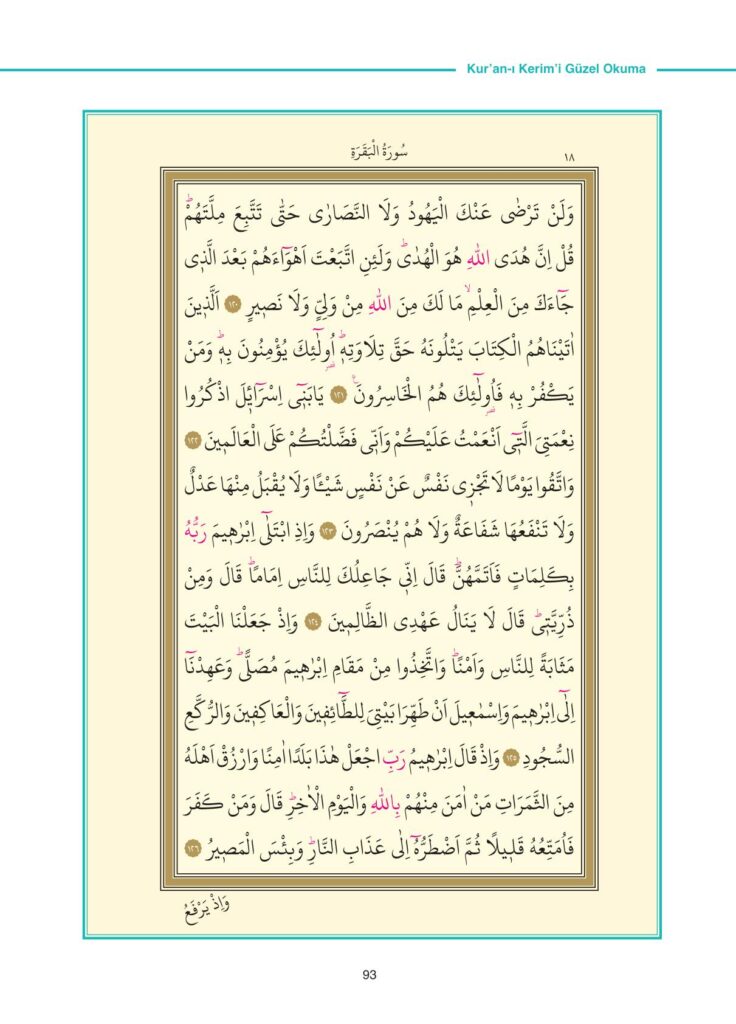 Kur’an-ı Kerim’i Güzel Okuma
سُورَةُ الْبَقَرَةِ
١٨
وَلَنْ تَرْضٰى عَنْكَ الْيَهُودُ وَلَا النَّصَارٰى حَتّٰى تَتَّبِعَ مِلَّتَهُمْۜ
قُلْ اِنَّ هُدَى اللّٰهِ هُوَ الْهُدٰىۜ وَلَئِنِ اتَّبَعْتَ اَهْوَٓاءَهُمْ بَعْدَ الَّذ۪ى
جَٓاءَكَ مِنَ الْعِلْمِۙ مَا لَكَ مِنَ اللّٰهِ مِنْ وَلِيٍّ وَلَا نَص۪يرٍ ﴿١٢٠﴾ اَلَّذ۪ينَ
اٰتَيْنَاهُمُ الْكِتَابَ يَتْلُونَهُ حَقَّ تِلَاوَتِه۪ۜ اُو۬لٰٓئِكَ يُؤْمِنُونَ بِه۪ۜ وَمَنْ
يَكْفُرْ بِه۪ فَاُو۬لٰٓئِكَ هُمُ الْخَاسِرُونَ۟ ﴿١٢١﴾ يَابَن۪ٓى اِسْرَٓائ۪لَ اذْكُرُوا
نِعْمَتِيَ الَّت۪ٓى اَنْعَمْتُ عَلَيْكُمْ وَاَنّ۪ى فَضَّلْتُكُمْ عَلَى الْعَالَم۪ينَ ﴿١٢٢﴾
وَاتَّقُوا يَوْمًا لَا تَجْز۪ى نَفْسٌ عَنْ نَفْسٍ شَيْـًٔا وَلَا يُقْبَلُ مِنْهَا عَدْلٌ
وَلَا تَنْفَعُهَا شَفَاعَةٌ وَلَا هُمْ يُنْصَرُونَ ﴿١٢٣﴾ وَاِذِ ابْتَلٰٓى اِبْرٰه۪يمَ رَبُّهُ
بِكَلِمَاتٍ فَاَتَمَّهُنَّۜ قَالَ اِنّ۪ى جَاعِلُكَ لِلنَّاسِ اِمَامًاۜ قَالَ وَمِنْ
ذُرِّيَّت۪ىۜ قَالَ لَا يَنَالُ عَهْدِى الظَّالِم۪ينَ ﴿١٢٤﴾ وَاِذْ جَعَلْنَا الْبَيْتَ
مَثَابَةً لِلنَّاسِ وَاَمْنًاۜ وَاتَّخِذُوا مِنْ مَقَامِ اِبْرٰه۪يمَ مُصَلًّىۜ وَعَهِدْنَٓا
اِلٰٓى اِبْرٰه۪يمَ وَاِسْمٰع۪يلَ اَنْ طَهِّرَا بَيْتِيَ لِلطَّٓائِف۪ينَ وَالْعَاكِف۪ينَ وَالرُّكَّعِ
السُّجُودِ ﴿١٢٥﴾ وَاِذْ قَالَ اِبْرٰه۪يمُ رَبِّ اجْعَلْ هٰذَا بَلَدًا اٰمِنًا وَارْزُقْ اَهْلَهُ
مِنَ الثَّمَرَاتِ مَنْ اٰمَنَ مِنْهُمْ بِاللّٰهِ وَالْيَوْمِ الْاٰخِرِۜ قَالَ وَمَنْ كَفَرَ
فَاُمَتِّعُهُ قَل۪يلًا ثُمَّ اَضْطَرُّهُٓ اِلٰى عَذَابِ النَّارِۜ وَبِئْسَ الْمَص۪يرُ ﴿١٢٦﴾
وَاِذْ يَرْفَعُ
93